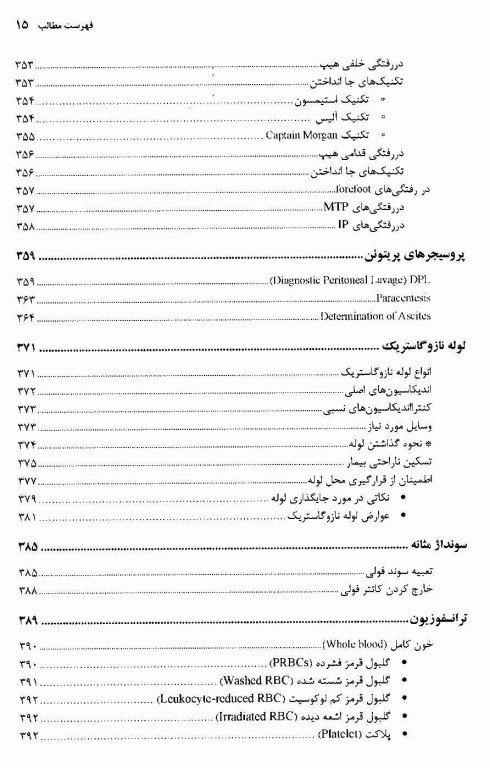 فهرست مطالب ۱۵
دررفتگی خلفی هیپ ۳۵۳
تکنیک‌های جا انداختن ۳۵۳
▫ تکنیک استیمسون ۳۵۴
▫ تکنیک آلیس ۳۵۴
▫ تکنیک Captain Morgan ۳۵۵
دررفتگی قدامی هیپ ۳۵۶
تکنیک‌های جا انداختن ۳۵۶
در رفتگی‌های forefoot ۳۵۷
دررفتگی‌های MTP ۳۵۷
دررفتگی‌های IP ۳۵۸
پروسیجرهای پریتوئن ۳۵۹
(Diagnostic Peritoneal Lavage) DPL ۳۵۹
Paracentesis ۳۶۳
Determination of Ascites ۳۶۴
لوله نازوگاستریک ۳۷۱
انواع لوله نازوگاستریک ۳۷۱
اندیکاسیون‌های اصلی ۳۷۲
کنترااندیکاسیون‌های نسبی ۳۷۳
وسایل مورد نیاز ۳۷۳
* نحوه گذاشتن لوله ۳۷۴
تسکین ناراحتی بیمار ۳۷۵
اطمینان از قرارگیری محل لوله ۳۷۷
• نکاتی در مورد جایگذاری لوله ۳۷۹
• عوارض لوله نازوگاستریک ۳۸۱
سونداژ مثانه ۳۸۵
تعبیه سوند فولی ۳۸۵
خارج کردن کاتتر فولی ۳۸۸
ترانسفوزیون ۳۸۹
خون کامل (Whole blood) ۳۹۰
• گلبول قرمز فشرده (PRBCs) ۳۹۰
• گلبول قرمز شسته شده (Washed RBC) ۳۹۱
• گلبول قرمز کم لوکوسیت (Leukocyte-reduced RBC) ۳۹۲
• گلبول قرمز اشعه دیده (Irradiated RBC) ۳۹۲
• پلاکت (Platelet) ۳۹۲